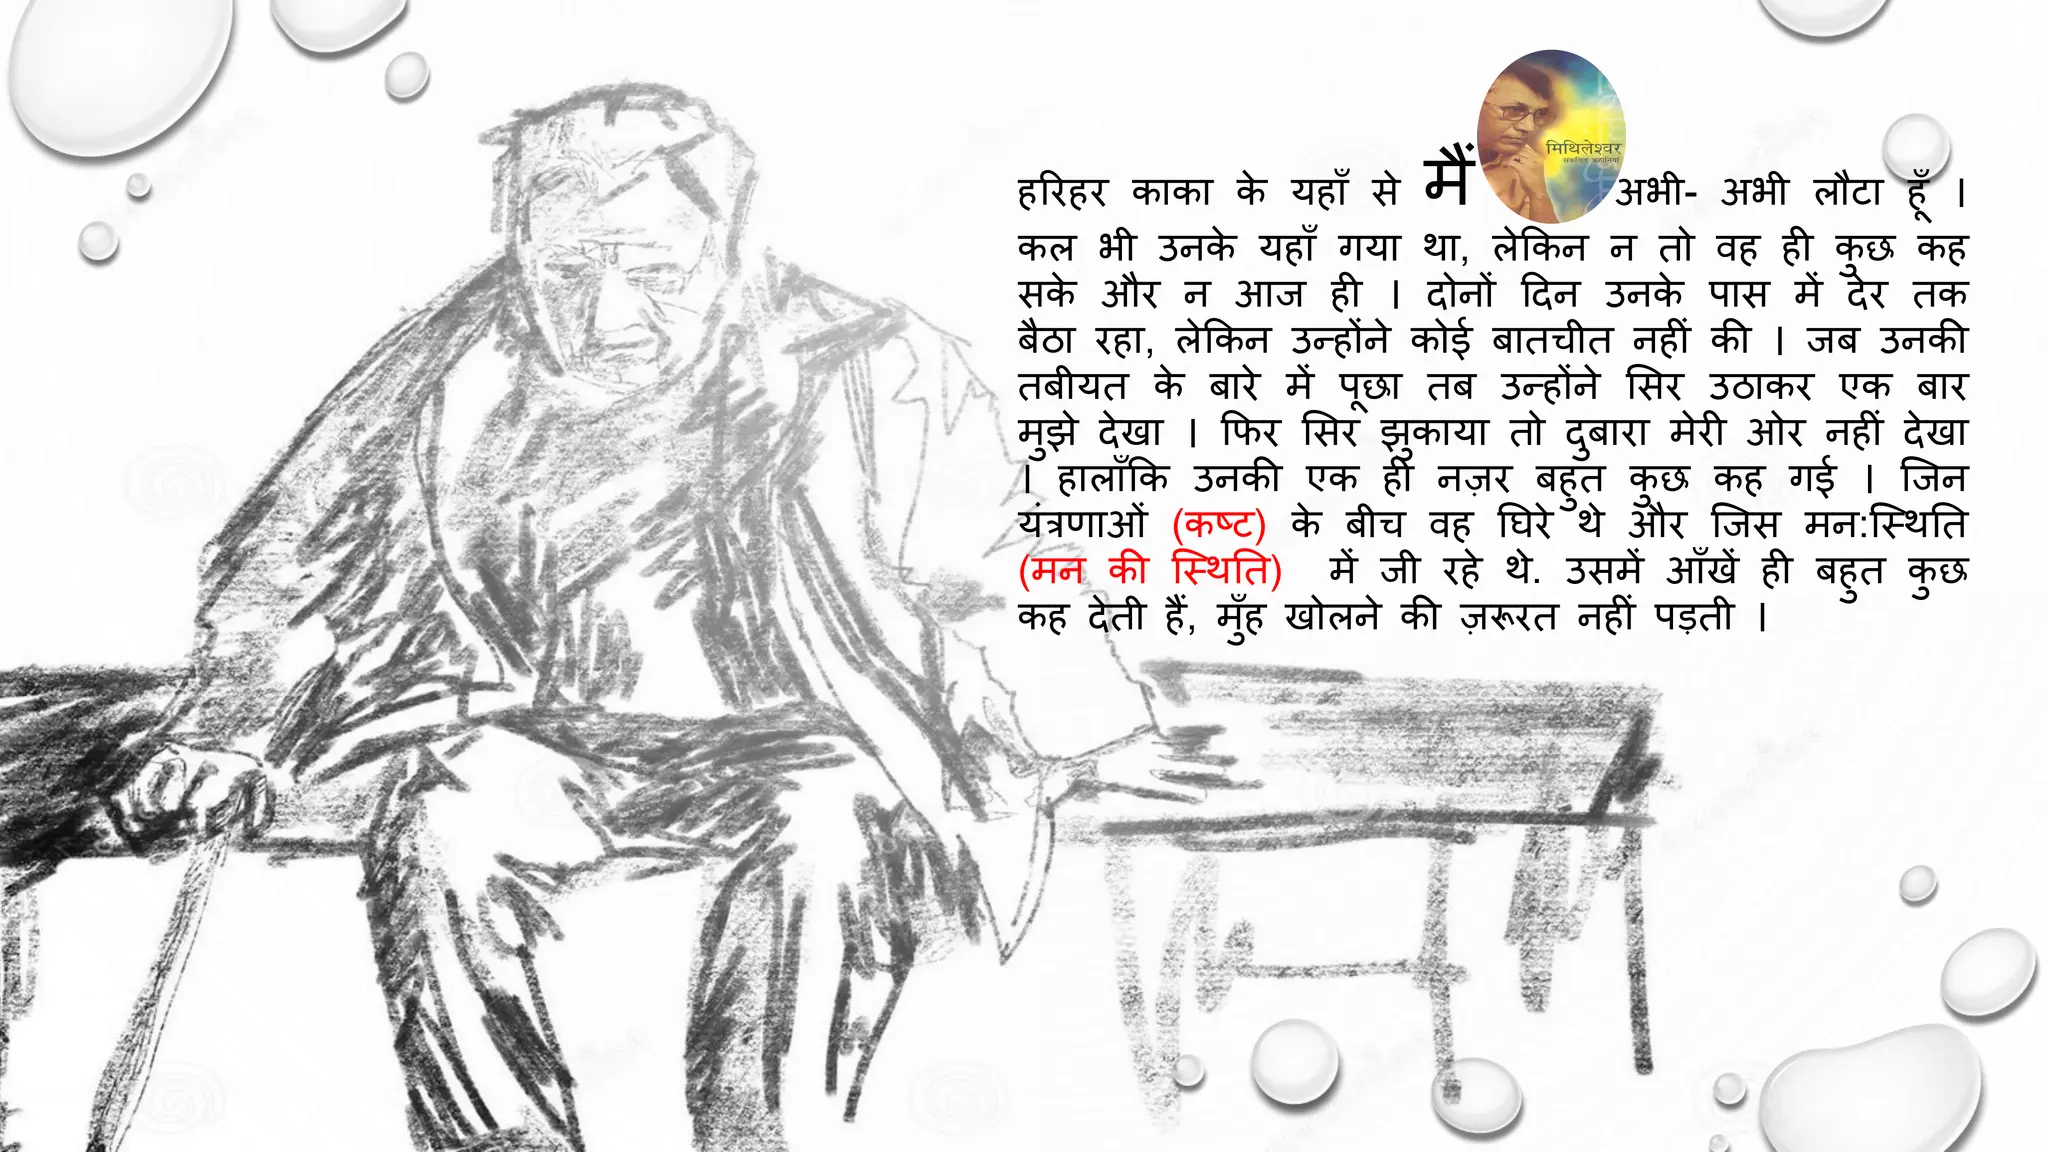 हरिहर काका के यहाँ से मैं अभी- अभी लौटा हूँ ।
मिथिलेश्वर
संकलित कहानियां
कल भी उनके यहाँ गया था, लेकिन न तो वह ही कुछ कह
सके और न आज ही । दोनों दिन उनके पास में देर तक
बैठा रहा, लेकिन उन्होंने कोई बातचीत नहीं की । जब उनकी
तबीयत के बारे में पूछा तब उन्होंने सिर उठाकर एक बार
मुझे देखा । फिर सिर झुकाया तो दुबारा मेरी ओर नहीं देखा
। हालाँकि उनकी एक ही नज़र बहुत कुछ कह गई । जिन
यंत्रणाओं (कष्ट) के बीच वह घिरे थे और जिस मन:स्थिति
(मन की स्थिति) में जी रहे थे. उसमें आँखें ही बहुत कुछ
कह देती हैं, मुँह खोलने की ज़रूरत नहीं पड़ती ।